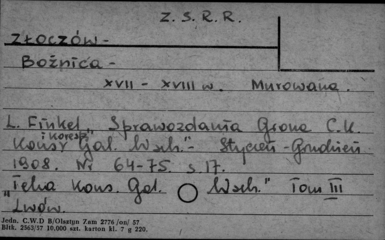 Z. S. R. R.
ZŁOCZÓW -
BOŻNICA -
XVII - XVIII w. Murowana.
L. Finkel „Sprawozdania Grona C.K.
i koresp.
Kons. Gal. Wsch." Styczeń - Grudzień
1908. Nr 64-75 s. 17.
„Teka Kons. Gal. Wsch." Tom III
Lwów.
Jedn. C.W.D B/Olsztyn Zam 2776/on/ 57
Błtk. 2563/57 10,000 szt. karton kl. 7 g 220.